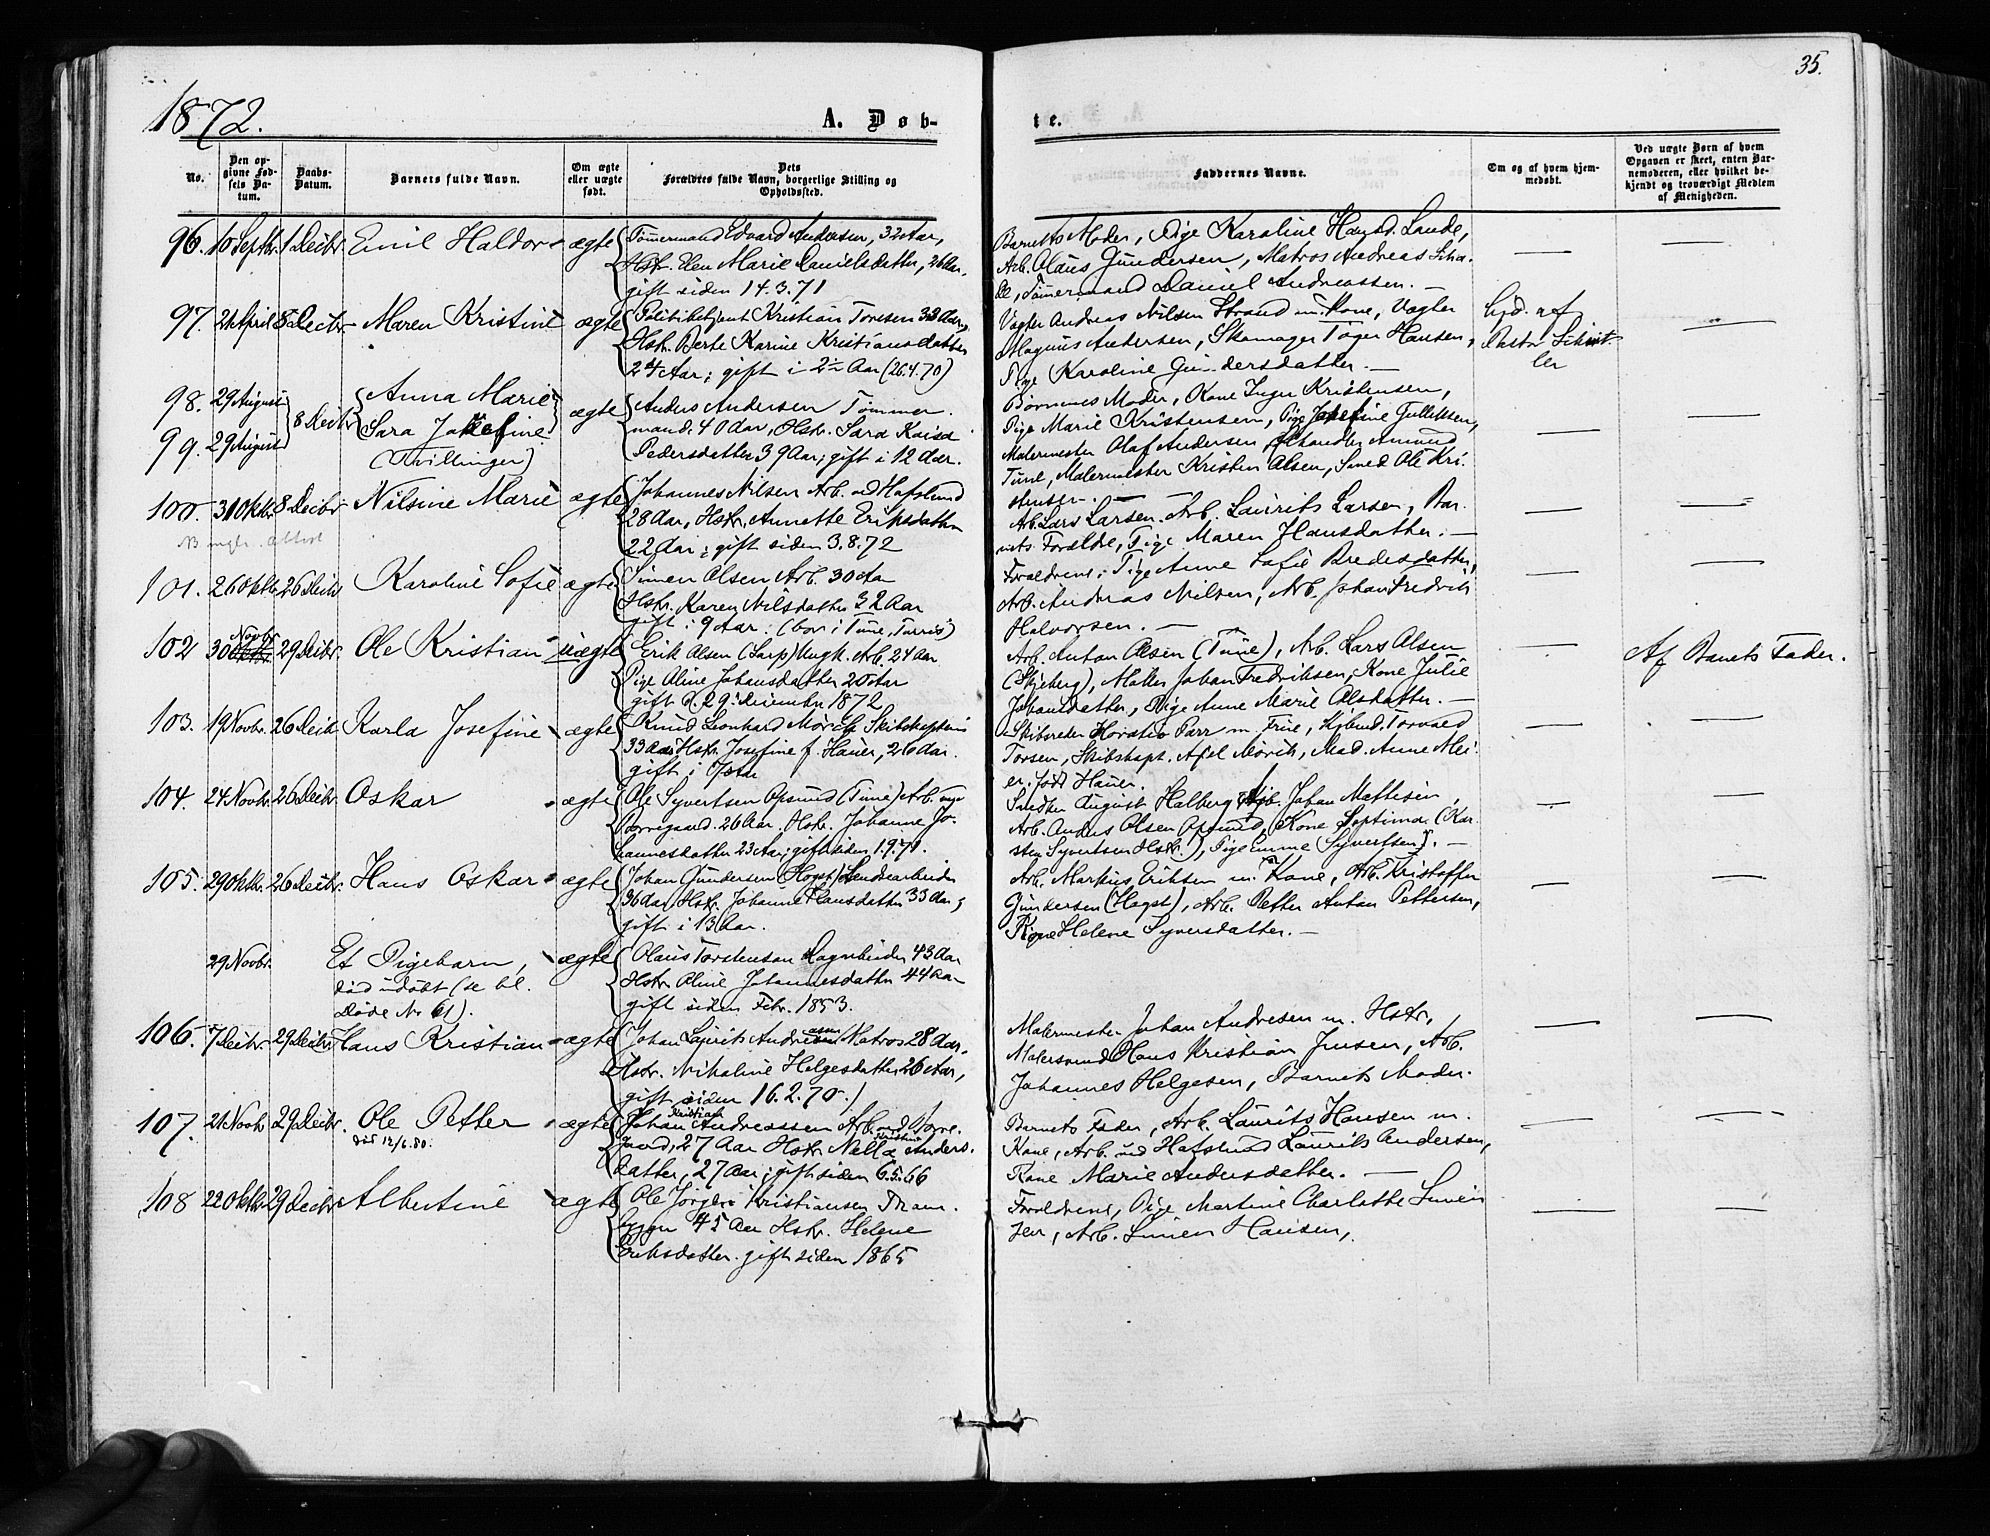 35.
1872.
A. Døb-
te.
No.
Den op-
givne Fød-
sels Da-
tum.
Daabs-
Datum.
Barnets fulde Navn.
Om ægte
eller uægte
født.
Dets
Forældres fulde Navn, borgerlige Stilling og
Opholdssted.
Faddernes Navne.
Om og af hvem hjem-
medøbt.
Ved uægte Børn af hvem
Opgaven er skeet, enten Bar-
nemoderen, eller hvilket be-
kjendt og troværdigt Medlem
af Menigheden.
96. 10 Septbr. 1 Decbr. Emil Haldor ægte
Tømermand Edvard Andersen, 32 Aar,
Hstr. Elen Marie Danielsdatter, 26 Aar.
gift siden 14.3.71
Barnets Moder, Pige Karoline Lande,
Arb. Olaus Gundersen, Matros Andreas
Tømermand Daniel Andreassen. —
97. 21 April 8 Decbr. Maren Kristine ægte
Politibetjent Kristian Toresen 33 Aar,
Hstr. Berte Karine Kristiansdatter
24 Aar; gift i 2½ Aar (26.4.70)
Vægter Andreas Nilsen Strand m. Kone, Vægter
Magnus Andersen, Skomager Tøger Hansen,
Pige Karoline Gundersdatter. —
Hjd. af
Pastor
ler
98. 29 August Anna Marie
99. 29 August 8 Decbr. Sara Josefine ægte
(Tvillinger)
Anders Andersen Tømmer-
mand. 40 Aar, Hstr. Sara Kaisa
Pedersdatter 39 Aar; gift i 12 Aar.
Børnenes Moder, Kone Inger Kristensen,
Pige Marie Kristensen, Pige Josefine Gulliksen,
Malermester Olaf Andersen Amund
Tune, Malermester Kristen Olsen, Smed Ole Kri-
stensen. —
100. 31 Oktbr. 8 Decbr. Nilsine Marie ægte
Johannes Nilsen Arb. ved Hafslund
28 Aar, Hstr. Annette Eriksdatter
22 Aar; gift siden 3.8.72
Arb. Lars Larsen. Arb. Laurits Larsen, Bar-
nets Forældre, Pige Maren Hansdatter. —
101. 26 Oktb. 26 Decbr. Karoline Sofie ægte
Simen Olsen Arb. 30 Aar
Hstr. Karen Nilsdatter 32 Aar
gift i 9 Aar. (bor i Tune,
Forældrene, Pige Anne Sofie Bredesdatter,
Arb. Andreas Nilsen, Arb. Johan Fredrik
Halvorsen. —
102 30 Novbr 29 Decbr. Ole Kristian uægte
Erik Olsen (Sarp) Ungk. Arb. 24 Aar
Pige Aline Johansdatter 20 Aar
gift d. 29. December 1872.
Arb. Anton Olsen (Tune), Arb. Lars Olsen
(Skjeberg), Johan Fredriksen, Kone Julie
Johansdatter, Pige Anne Marie Olsdatter. —
Af Barnets Fader.
103. 19 Novbr. 26 Decbr. Karla Josefine ægte
Knud Leonhard Mørch Skibskaptein
33 Aar Hstr. Josefine f. Hauer, 26 Aar.
gift i 7 Aar
Skibsreder Horatio Parr m. Frue, Torvald
Torsen, Skibskapt. Mørch, Mad. Anne Mei-
er, født Hauer.
104. 24 Novbr. 26 Decbr. Oskar ægte
Ole Syvertsen Opsund (Tune) Arb. ved
Borregaard. 26 Aar. Hstr. Johanne Jo-
hannesdatter 23 Aar; gift siden 1.9.71.
August Halberg, Johan Mathisen,
Arb. Anders Olsen Opsund, Kone Septima (Kar-
sten Syvertsen Hstr.), Pige Emma (Syvertsen). —
105. 29 Oktbr. 26 Decbr. Hans Oskar ægte
Johan Gundersen
36 Aar, Hstr. Johanne Hansdatter 33 Aar,
gift i 13 Aar.
Arb. Markus Eriksen m. Kone, Arb. Kristoffer
Gundersen Arb. Petter Anton Pettersen,
Kone Helene Syversdatter. —
29 Novbr. Et Pigebarn, ægte
død udøbt (se bl.
Døde Nr. 61).
Olaus Torstensen 43 Aar
Hstr. Oline Johannesdatter 44 Aar
gift siden Febr. 1853.
106. 7 Decbr. 29 Decbr. Hans Kristian ægte
Johan Laurits Andreassen Matros 28 Aar,
Hstr. Nikoline Helgesdatter 26 Aar,
gift siden 16.2.70.
Malermester Johan Andresen m. Hstr.,
Malersvend Hans Kristian Jensen, Arb.
Johannes Helgesen, Barnets Moder.
107. 21 Novbr. 29 Decbr. Ole Petter ægte
død 12/6.80.
Johan Kristian Andreassen Arb. ved Borre-
gaard, 27 Aar Hstr. Nella Anders-
datter, 27 Aar; gift siden 6.5.66
Barnets Fader, Arb. Laurits Hansen m.
Kone, Arb. ved Hafslund Laurits Andersen,
Kone Marie Andersdatter. —
108 22 Oktbr. 29 Decbr. Albertine ægte
Ole Jørgen Kristiansen
45 Aar Hstr. Helene
Eriksdatter. gift siden 1865
Forældrene, Pige Martine Charlotte Simen-
sen, Arb. Simen Hansen,